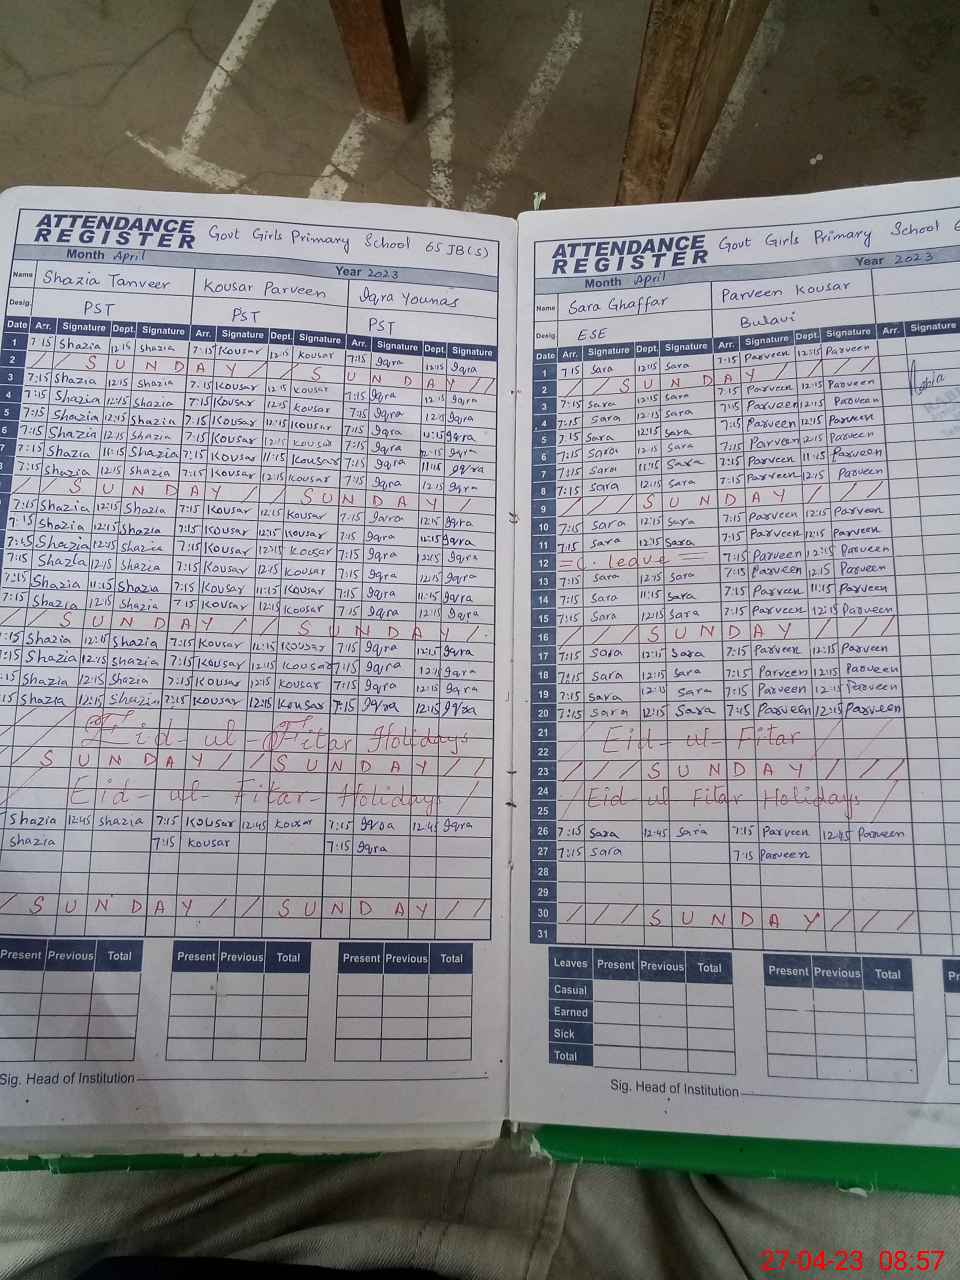 ATTENDANCE REGISTER Govt Girls Primary School 65 JB(S)
Month April Year 2023
Name Shazia Tanveer Kousar Parveen Iqra Younas
Desig. PST PST PST
Date Arr. Signature Dept. Signature Arr. Signature Dept. Signature Arr. Signature Dept. Signature
1 7:15 Shazia 12:15 Shazia 7:15 Kousar 12:15 Kousar 7:15 Iqra 12:15 Iqra
2 S U N D A Y S U N D A Y
3 7:15 Shazia 12:15 Shazia 7:15 Kousar 12:15 Kousar 7:15 Iqra 12:15 Iqra
4 7:15 Shazia 12:15 Shazia 7:15 Kousar 12:15 Kousar 7:15 Iqra 12:15 Iqra
5 7:15 Shazia 12:15 Shazia 7:15 Kousar 12:15 Kousar 7:15 Iqra 12:15 Iqra
6 7:15 Shazia 12:15 Shazia 7:15 Kousar 12:15 Kousar 7:15 Iqra 12:15 Iqra
7 7:15 Shazia 11:15 Shazia 7:15 Kousar 11:15 Kousar 7:15 Iqra 11:15 Iqra
8 7:15 Shazia 12:15 Shazia 7:15 Kousar 12:15 Kousar 7:15 Iqra 12:15 Iqra
S U N D A Y S U N D A Y
7:15 Shazia 12:15 Shazia 7:15 Kousar 12:15 Kousar 7:15 Iqra 12:15 Iqra
7:15 Shazia 12:15 Shazia 7:15 Kousar 12:15 Kousar 7:15 Iqra 12:15 Iqra
7:15 Shazia 12:15 Shazia 7:15 Kousar 12:15 Kousar 7:15 Iqra 12:15 Iqra
7:15 Shazia 12:15 Shazia 7:15 Kousar 12:15 Kousar 7:15 Iqra 12:15 Iqra
7:15 Shazia 11:15 Shazia 7:15 Kousar 11:15 Kousar 7:15 Iqra 11:15 Iqra
7:15 Shazia 12:15 Shazia 7:15 Kousar 12:15 Kousar 7:15 Iqra 12:15 Iqra
S U N D A Y S U N D A Y
:15 Shazia 12:15 Shazia 7:15 Kousar 12:15 Kousar 7:15 Iqra 12:15 Iqra
:15 Shazia 12:15 Shazia 7:15 Kousar 12:15 Kousar 7:15 Iqra 12:15 Iqra
:15 Shazia 12:15 Shazia 7:15 Kousar 12:15 Kousar 7:15 Iqra 12:15 Iqra
:15 Shazia 12:15 Shazia 7:15 Kousar 12:15 Kousar 7:15 Iqra 12:15 Iqra
Eid-ul-Fitar Holidays
S U N D A Y S U N D A Y
Eid-ul-Fitar-Holidays
Shazia 12:45 Shazia 7:15 Kousar 12:45 Kousar 7:15 Iqra 12:45 Iqra
Shazia 7:15 Kousar 7:15 Iqra
S U N D A Y S U N D A Y
Present Previous Total Present Previous Total Present Previous Total
Sig. Head of Institution
ATTENDANCE REGISTER Govt Girls Primary School 6
Month April Year 2023
Name Sara Ghaffar Parveen Kousar
Desig. ESE Bulavi
Date Arr. Signature Dept. Signature Arr. Signature Dept. Signature Arr. Signature
1 7:15 Sara 12:15 Sara 7:15 Parveen 12:15 Parveen
2 S U N D A Y
3 7:15 Sara 12:15 Sara 7:15 Parveen 12:15 Parveen
4 7:15 Sara 12:15 Sara 7:15 Parveen 12:15 Parveen
5 7:15 Sara 12:15 Sara 7:15 Parveen 12:15 Parveen
6 7:15 Sara 12:15 Sara 7:15 Parveen 12:15 Parveen
7 7:15 Sara 11:45 Sara 7:15 Parveen 11:45 Parveen
8 7:15 Sara 12:15 Sara 7:15 Parveen 12:15 Parveen
9 S U N D A Y
10 7:15 Sara 12:15 Sara 7:15 Parveen 12:15 Parveen
11 7:15 Sara 12:15 Sara 7:15 Parveen 12:15 Parveen
12 C. leave 7:15 Parveen 12:15 Parveen
13 7:15 Sara 12:15 Sara 7:15 Parveen 12:15 Parveen
14 7:15 Sara 11:15 Sara 7:15 Parveen 11:15 Parveen
15 7:15 Sara 12:15 Sara 7:15 Parveen 12:15 Parveen
16 S U N D A Y
17 7:15 Sara 12:15 Sara 7:15 Parveen 12:15 Parveen
18 7:15 Sara 12:15 Sara 7:15 Parveen 12:15 Parveen
19 7:15 Sara 12:15 Sara 7:15 Parveen 12:15 Parveen
20 7:15 Sara 12:15 Sara 7:45 Parveen 12:15 Parveen
21 Eid-ul-Fitar
22
23 S U N D A Y
24 Eid-ul Fitar Holidays
25
26 7:15 Sara 12:45 Sara 7:15 Parveen 12:45 Parveen
27 7:15 Sara 7:15 Parveen
28
29
30 S U N D A Y
31
Leaves Present Previous Total Present Previous Total Pr
Casual
Earned
Sick
Total
Sig. Head of Institution
27-04-23 08:57